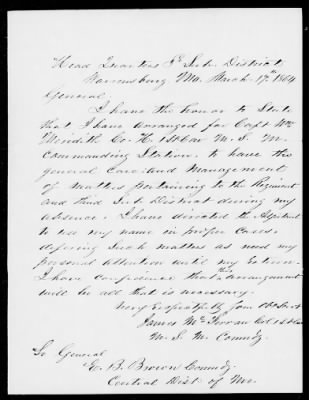 Head Quarters 3d Sub. District
Warrensburg Mo. March 17th 1864
General,
I have the honor to State
that I have arranged for Capt Wm
Meridith Co. H. 1st Cav M. S. M.
Commanding Station, to have the
general Care and Management
of matters pertaining to the Regiment
and third Sub District during my
absence. I have directed the Adjutant
to use my name in proper Cases,
defering Such matters as need my
personal attention until my return.
I have confidence that this arrangement
will be all that is necessary.
Very Respectfully Your Obt Servt
James McFerran Col 1st Cav
M. S. M. Comndg.
To General
E. B. Brown Comndg.
Central Dist of Mo.